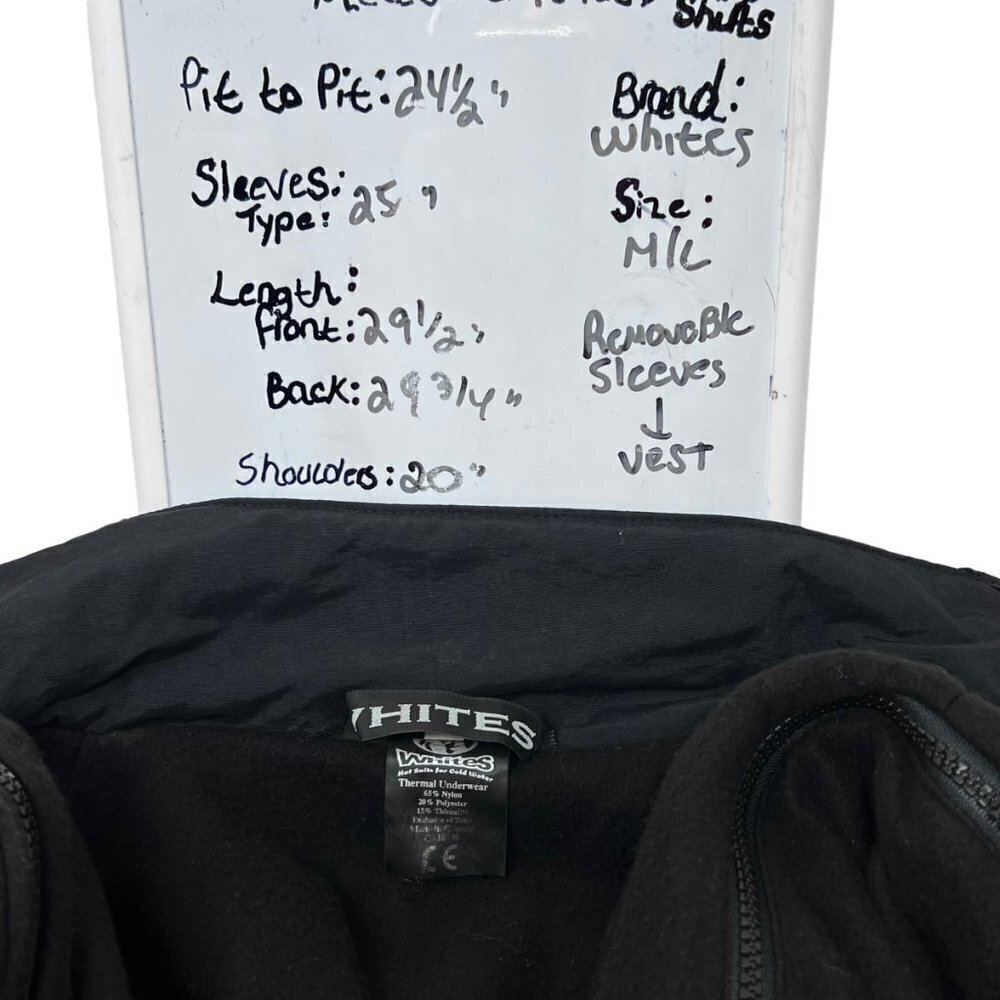 Shirts
Pit to Pit: 24 1/2"
Sleeves:
Type: 25"
Length:
Front: 29 1/2"
Back: 29 3/4"
Shoulders: 20"
Brand:
Whites
Size:
M/L
Removable
Sleeves
↓
vest
WHITES
Whites
Hot Suits for Cold Water
Thermal Underwear
65% Nylon
20% Polyester
15%
Exclusive of
CE